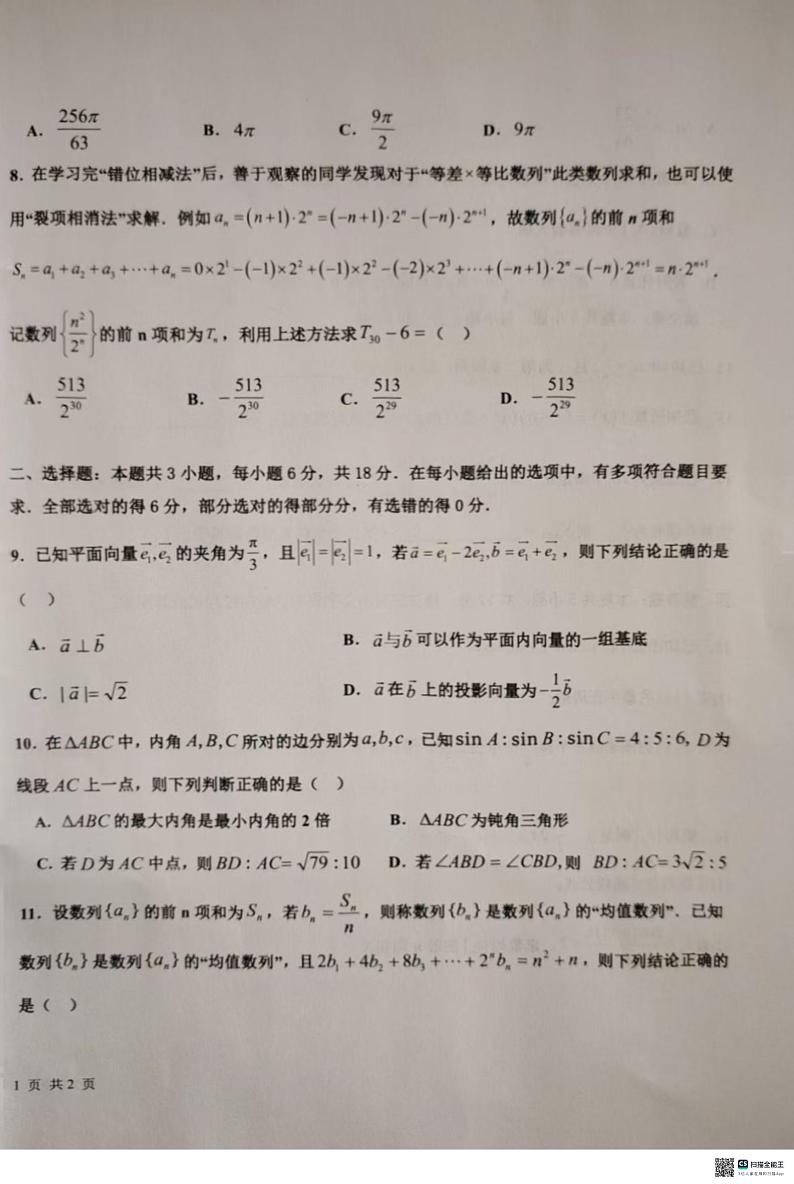 A. 256π/63 B. 4π C. 9π/2 D. 9π
8. 在学习完“错位相减法”后，善于观察的同学发现对于“等差×等比数列”此类数列求和，也可以使
用“裂项相消法”求解. 例如 aₙ=(n+1)·2ⁿ=(−n+1)·2ⁿ−(−n)·2ⁿ⁺¹，故数列{aₙ}的前 n 项和
Sₙ=a₁+a₂+a₃+⋯+aₙ=0×2¹−(−1)×2²+(−1)×2²−(−2)×2³+⋯+(−n+1)·2ⁿ−(−n)·2ⁿ⁺¹=n·2ⁿ⁺¹.
记数列{n²/2ⁿ}的前 n 项和为Tₙ，利用上述方法求T₃₀−6=（ ）
A. 513/2³⁰ B. −513/2³⁰ C. 513/2²⁹ D. −513/2²⁹
二、选择题：本题共 3 小题，每小题 6 分，共 18 分. 在每小题给出的选项中，有多项符合题目要
求. 全部选对的得 6 分，部分选对的得部分分，有选错的得 0 分.
9. 已知平面向量e₁⃗,e₂⃗ 的夹角为π/3，且|e₁⃗|=|e₂⃗|=1，若a⃗=e₁⃗−2e₂⃗,b⃗=e₁⃗+e₂⃗，则下列结论正确的是
（ ）
A. a⃗⊥b⃗ B. a⃗与b⃗可以作为平面内向量的一组基底
C. |a⃗|=√2 D. a⃗在b⃗上的投影向量为−1/2b⃗
10. 在△ABC中，内角 A,B,C 所对的边分别为a,b,c，已知sin A:sin B:sin C=4:5:6, D为
线段 AC 上一点，则下列判断正确的是（ ）
A. △ABC的最大内角是最小内角的 2 倍 B. △ABC为钝角三角形
C. 若D为AC中点，则BD:AC=√79:10 D. 若∠ABD=∠CBD,则 BD:AC=3√2:5
11. 设数列{aₙ}的前 n 项和为Sₙ，若bₙ=Sₙ/n，则称数列{bₙ}是数列{aₙ}的“均值数列”. 已知
数列{bₙ}是数列{aₙ}的“均值数列”，且2b₁+4b₂+8b₃+⋯+2ⁿbₙ=n²+n，则下列结论正确的
是（ ）
1 页 共 2 页
CS 扫描全能王